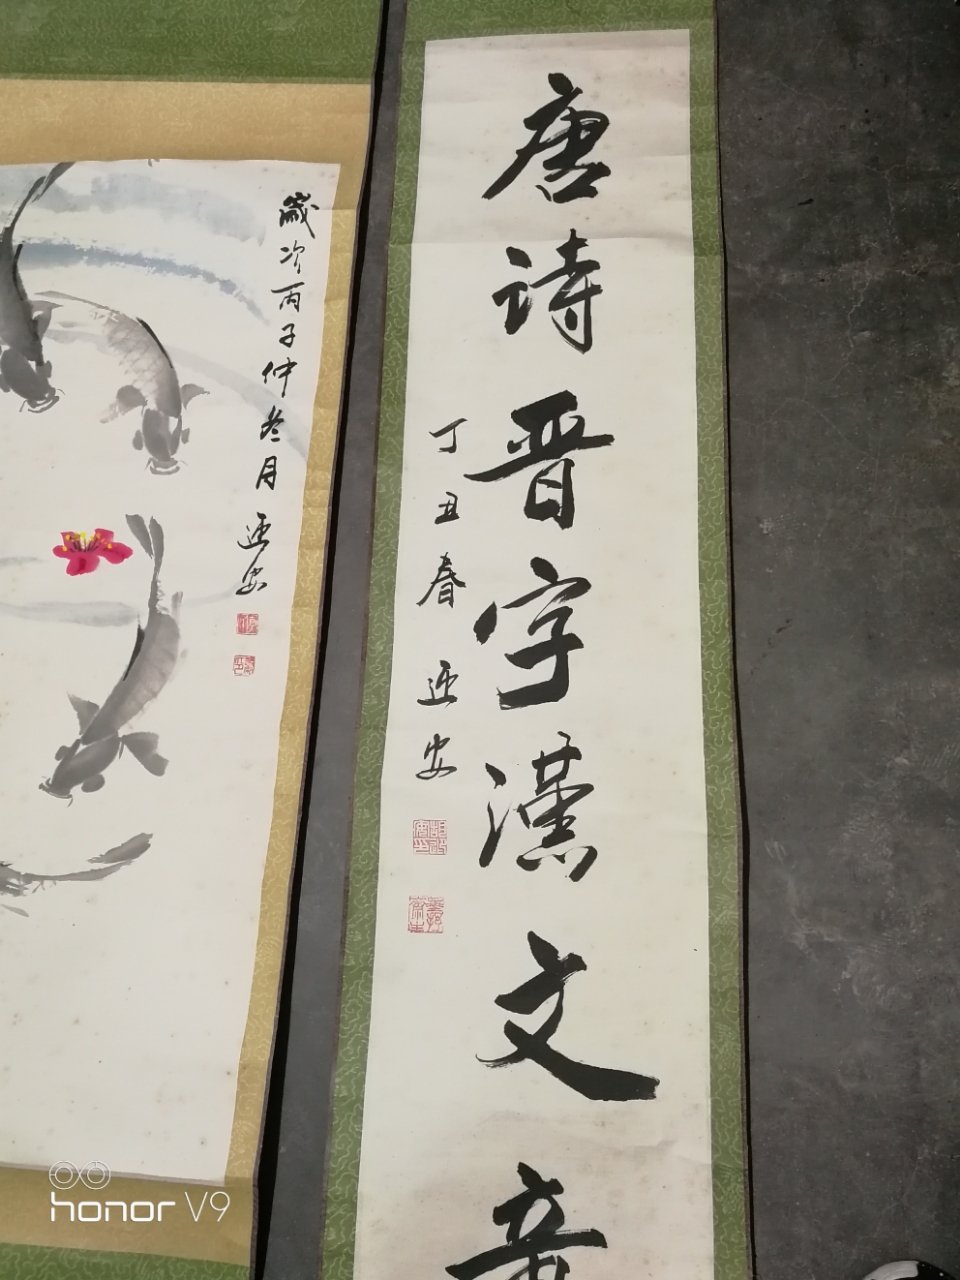 唐詩晋字漢文章
丁丑春 延安
歲次丙子仲冬月 延安
honor V9